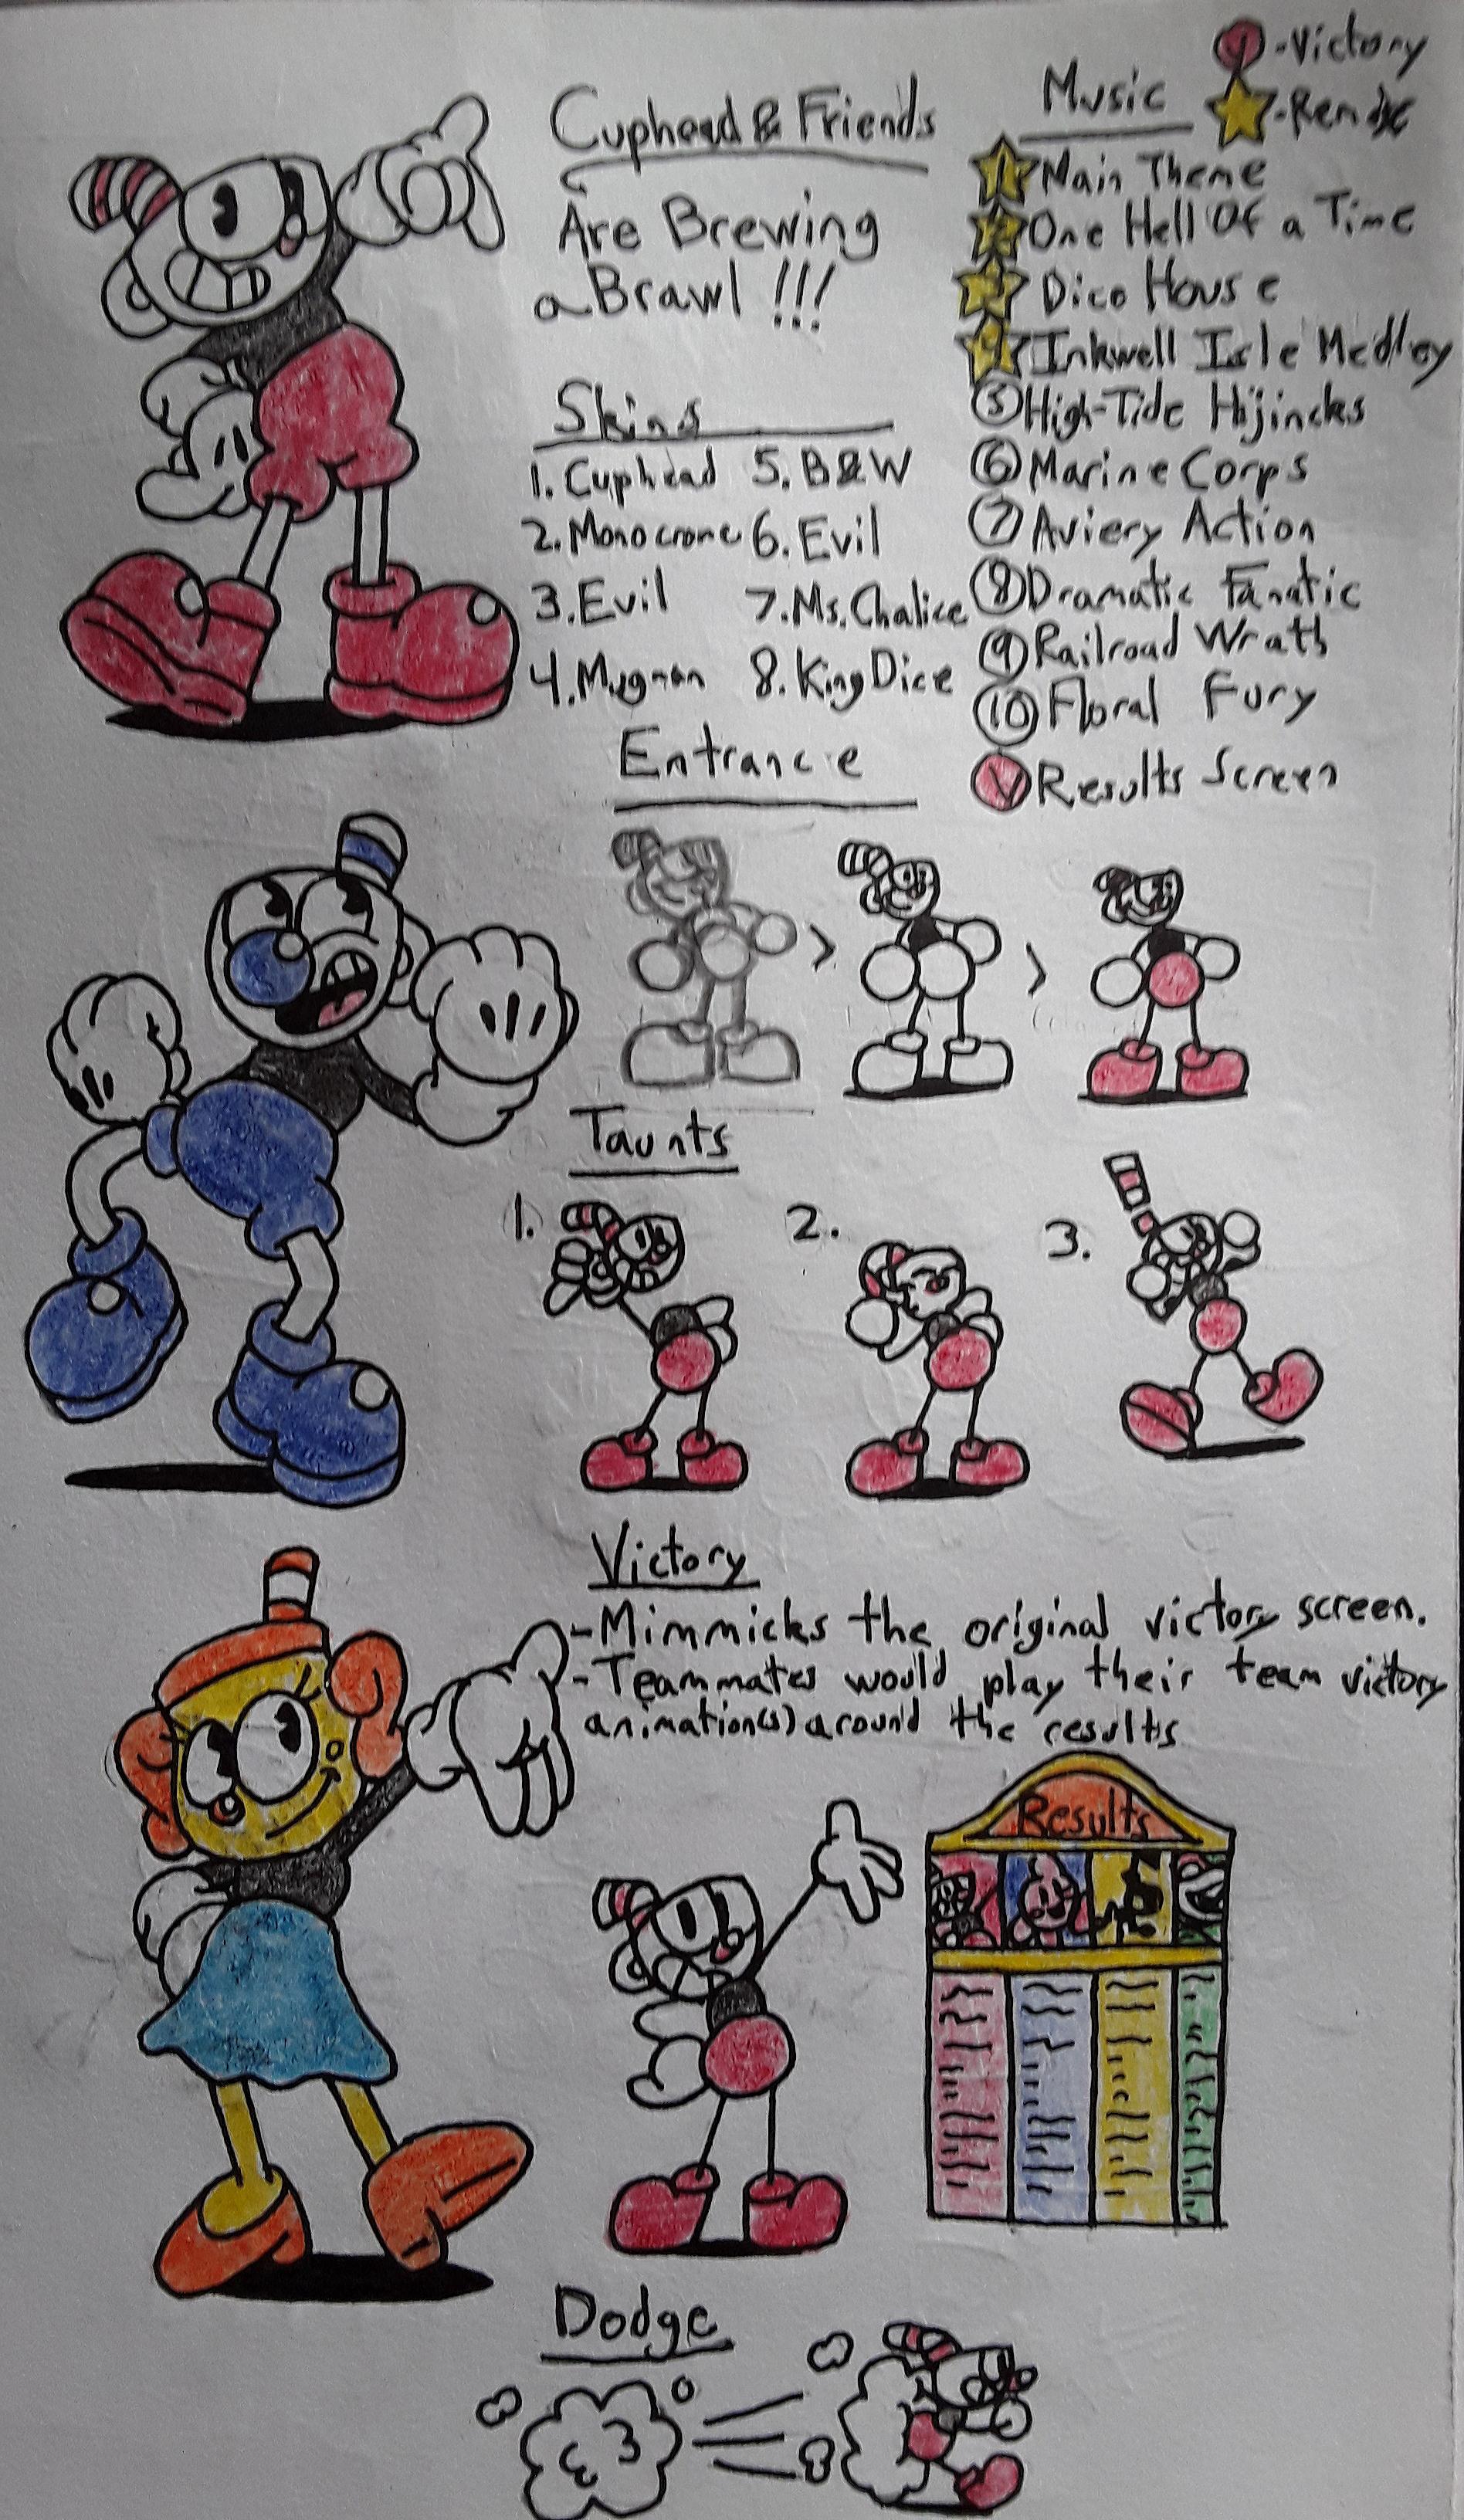 Cuphead & Friends
Are Brewing
a Brawl !!!
Skins
1. Cuphead
2. Monocrone
3. Evil
4. Mugman
5. B&W
6. Evil
7. Ms. Chalice
8. King Dice
Music
V - Victory
- Remix
1 Main Theme
2 One Hell Of a Time
3 Dice House
4 Inkwell Isle Medley
5 High-Tide Hijincks
6 Marine Corps
7 Aviery Action
8 Dramatic Fanatic
9 Railroad Wrath
10 Floral Fury
V Results Screen
Entrance
> >
Taunts
1. 2. 3.
Victory
- Mimmicks the original victory screen.
- Teammates would play their team victory
animation(s) around the results
Results
Dodge